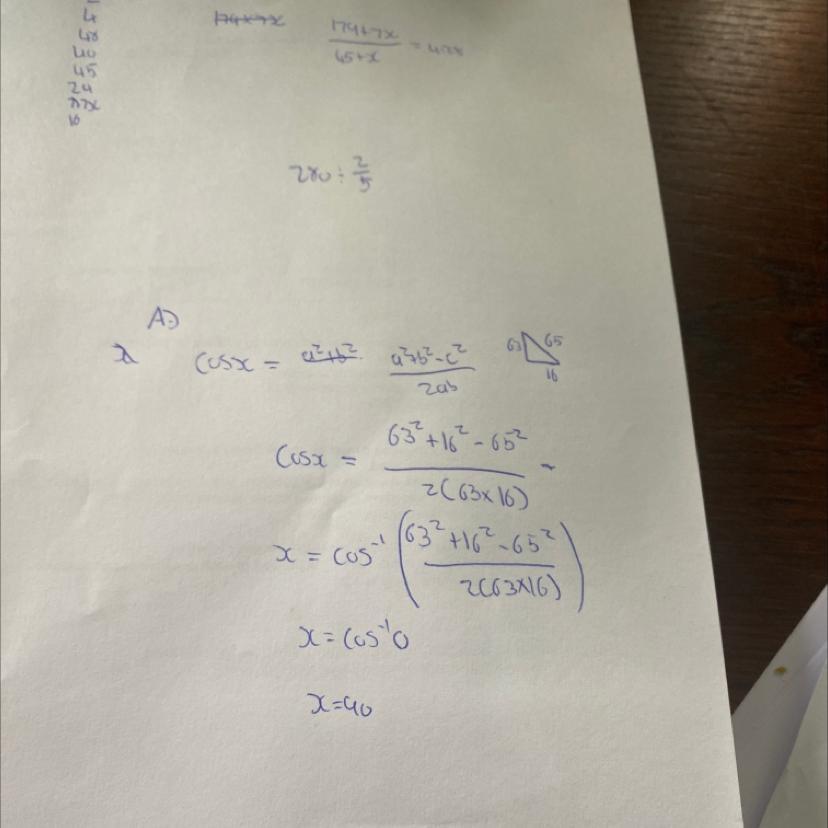 4
48
40
45
24
16
174+7x
174+7x / 65+x =
280 ÷ 2/5
A)
cosx = a²+b² a²+b²-c² / 2ab
63 65
16
Cosx = 63²+16²-65² / 2(63×16)
x = cos⁻¹ (63²+16²-65² / 2(63×16))
x = cos⁻¹0
x=90